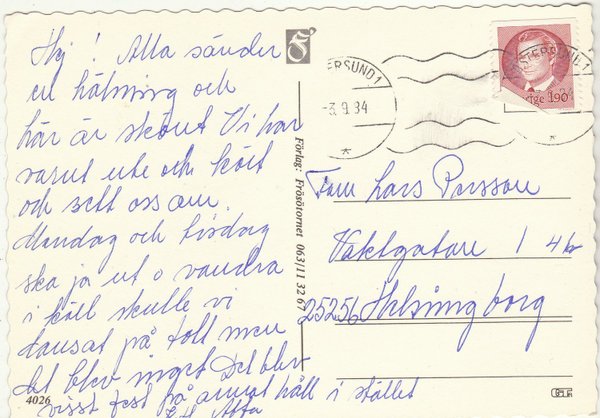 Hej! Alla sänder
en hälsning och
här är skönt Vi har
varit ute och kört
och sett oss om.
Mandag och tisdag
ska ja ut o vandra
i kväll skulle vi
dansat på toll men
det blev inget Det blev
visst fest på annat håll i stället
Alta
4026
Förlag: Frösötornet 063/11 32 67
ERSUND 1
-3.9.84
ÖSTERSUND 1
rige 190
Fam Lars Persson
Vaktgatan 1 4tr
25256 Helsingborg